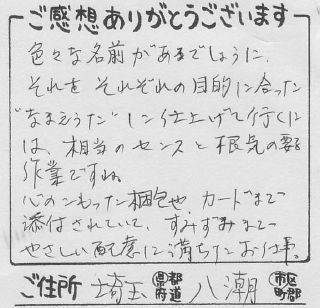 ご感想ありがとうございます
色々な名前があるでしょうに、
それをそれぞれの目的に合った
"なまえうた"に仕上げて行くに
は、相当のセンスと根気の要る
作業ですね。
心のこもった梱包や、カードまで
添付されていて、すみずみまで
やさしい配慮に満ちたお仕事。
ご住所 埼玉 都道府県 八潮 市区町郡